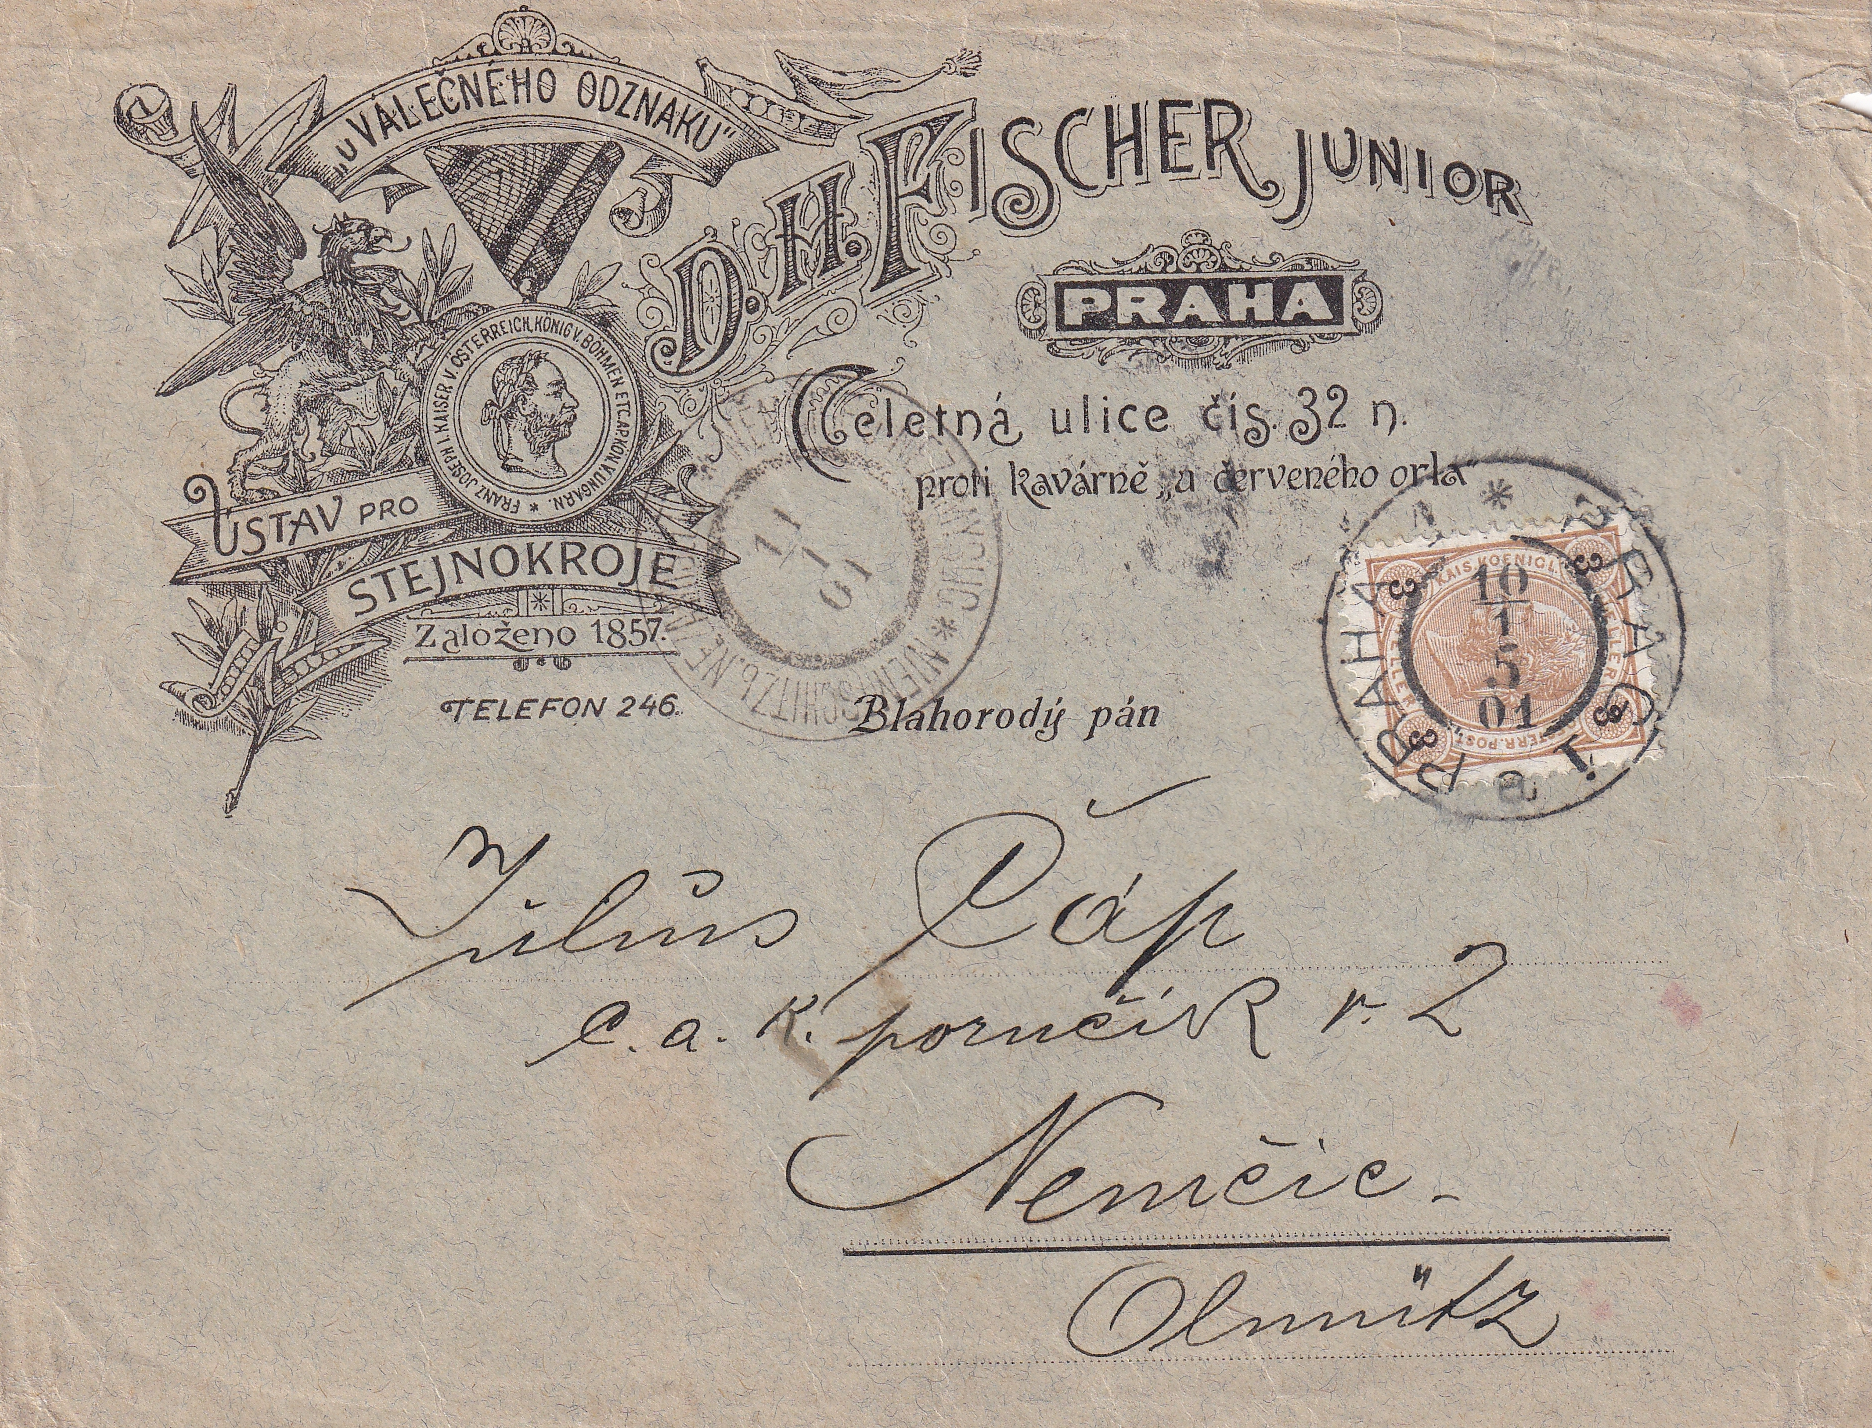 „U VÁLEČNÉHO ODZNAKU“
D. H. FISCHER JUNIOR
PRAHA
Celetná ulice čís. 32 n.
proti kavárně „u červeného orla“
FRANZ JOSEPH I. KAISER V. ÖSTERREICH, KÖNIG V. BÖHMEN ETC. APKÖN V. UNGARN. *
ÚSTAV PRO
STEJNOKROJE
Založeno 1857.
TELEFON 246.
11
1
01
NIEMTSCHITZ b.
PRAHA * PRAG 1.
10
1
5
01
KAIS. KOENIGL.
3 3 3 3
Blahorodý pán
Julius Čáp
c. a. k. poručík v. 2
Nemčic -
Olmütz